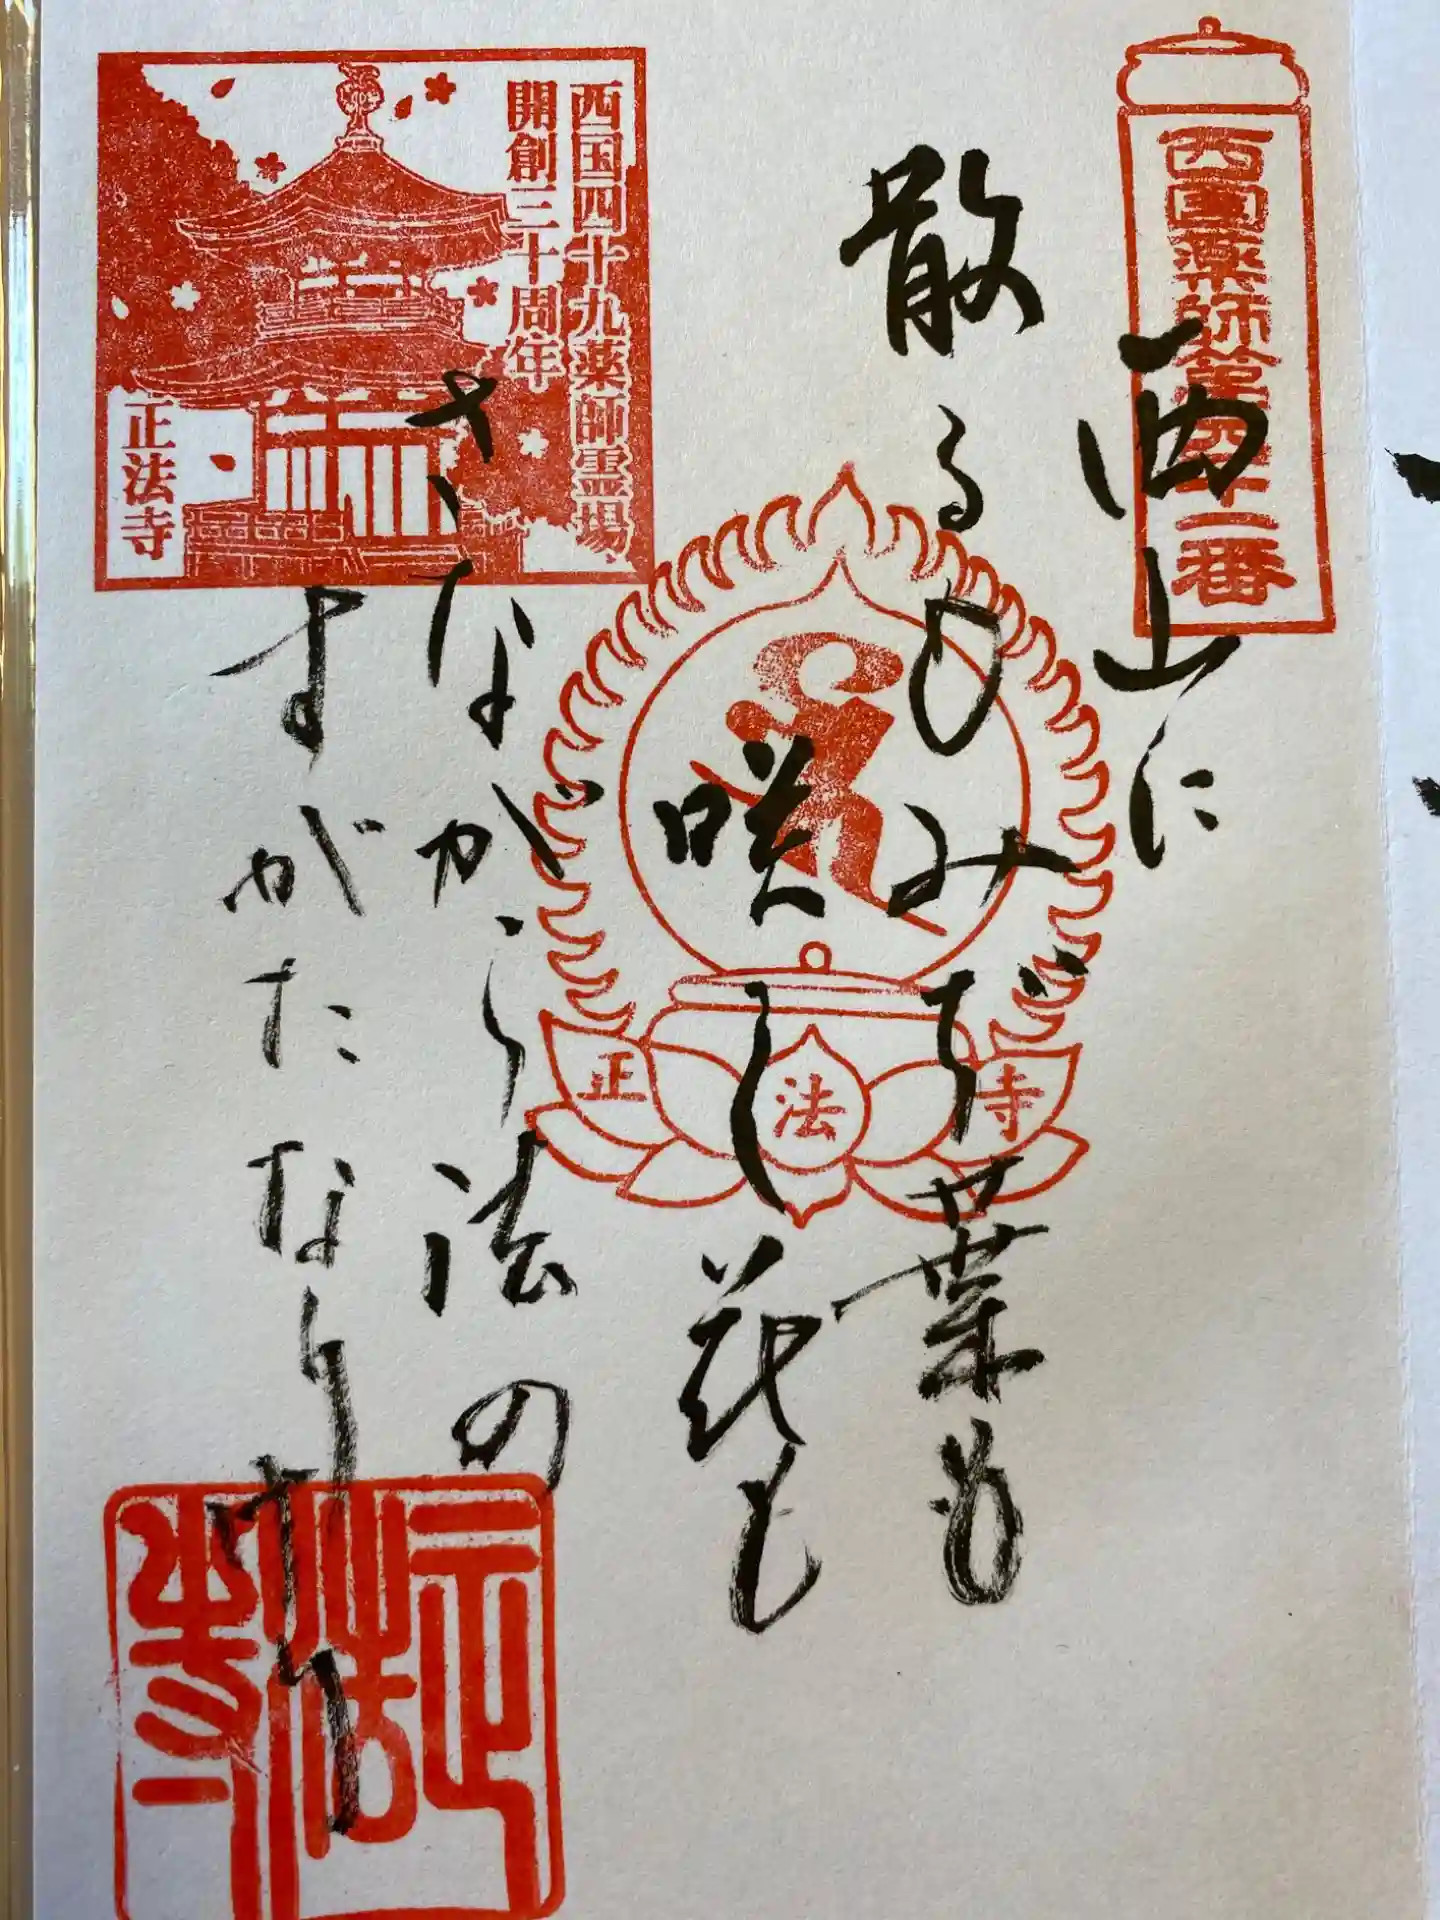 西国薬師第四十二番
西山に
散るもみぢ葉も
咲し花も
さなながら法の
すがたなりけり
西国四十九薬師霊場
開創三十周年
正法寺
正法寺
正法寺